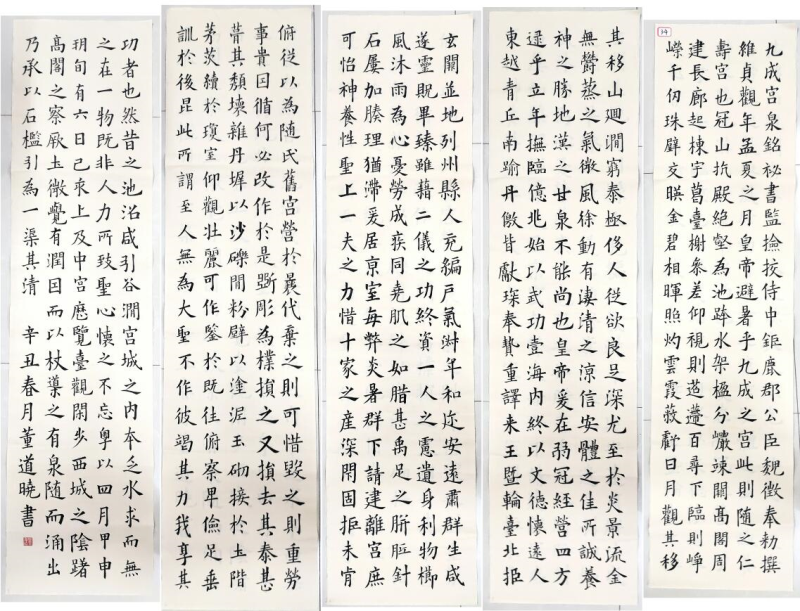 14
九成宮泉銘祕書監撿挍侍中鉅鹿郡公臣魏徵奉勅撰
維貞觀年孟夏之月皇帝避暑乎九成之宮此則随之仁
壽宮也冠山抗殿絕壑為池跨水架楹分巖竦闕高閣周
建長廊起棟宇葛臺榭參差仰視則迢遰百尋下臨則崢
嶸千仞珠壁交暎金碧相暉照灼雲霞蔽虧日月觀其移
其移山廻澗窮泰極侈人從欲良足深尤至於炎景流金
無欝蒸之氣微風徐動有淒清之涼信安體之佳所誠養
神之勝地漢之甘泉不能尚也皇帝爰在弱冠經營四方
逮乎立年撫臨億兆始以武功壹海内終以文德懷遠人
東越青丘南踰丹儌皆獻琛奉贄重譯来王暨輪臺北拒
玄闕並地列州縣人充編戶氣淑年和迩安遠肅群生咸
遂靈貺畢臻雖藉二儀之功終資一人之慮遺身利物櫛
風沐雨為心憂勞成疾同堯肌之如腊甚禹足之胼胝針
石屢加腠理猶滯爰居京室每弊炎暑群下請建離宮庶
可怡神養性聖上一夫之力惜十家之産深閇固拒未肯
俯從以為随氏舊宮營於曩代棄之則可惜毀之則重勞
事貴因循何必改作於是斲彫為樸損之又損去其泰甚
葺其頹壞雜丹墀以沙礫間粉壁以塗泥玉砌接於土階
茅茨續於瓊室仰觀壯麗可作鑒於既往俯察卑儉足垂
訓於後昆此所謂至人無為大聖不作彼竭其力我享其
功者也然昔之池沼咸引谷澗宮城之内本乏水求而無
之在一物既非人力所致聖心懷之不忘粵以四月甲申
朔旬有六日己亥上及中宮歷覽臺觀閑步西城之陰躊
高閣之察厥土微覺有潤因而以杖導之有泉随而涌出
乃承以石檻引為一渠其清 辛丑春月董道曉書